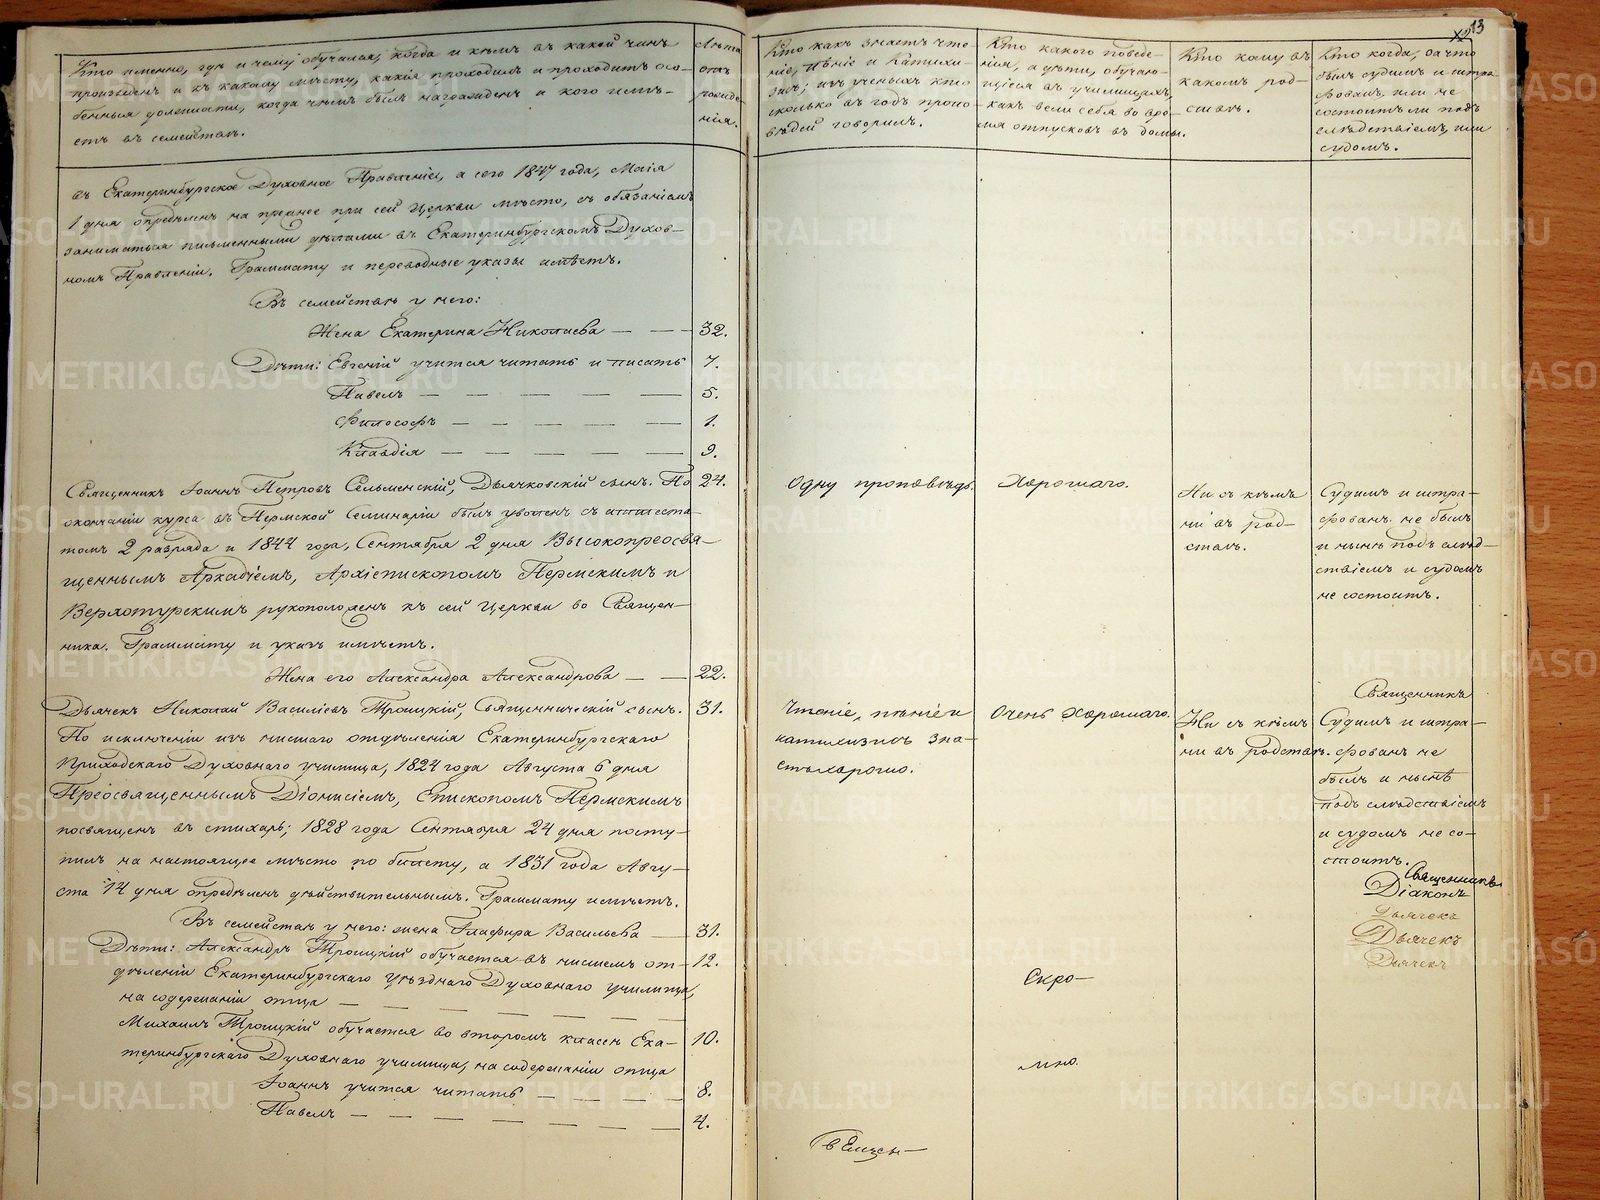 Кто именно, гдѣ и чему обучался, когда и кѣмъ въ какой чинъ
произведенъ и къ какому мѣсту, какія проходилъ и проходитъ осо-
бенныя должности, когда чѣмъ былъ награжденъ и кого имѣ-
етъ въ семействѣ.
Лѣта
отъ
рожде
нія.
въ Екатеринбургское Духовное Правленіе, а сего 1847 года, Маія
1 дня опредѣленъ на прежнее при сей Церкви мѣсто, съ обязаніемъ
заниматься письменными дѣлами въ Екатеринбургскомъ Духов-
номъ Правленіи. Граммату и переводные указы имѣетъ.
Въ семействѣ у него:
Жена Екатерина Николаева — — — 32.
Дѣти: Евгеній учится читать и писать 7.
Павелъ — — — — — 5.
Философъ — — — — — 1.
Клавдія — — — — — 9.
Священникъ Іоаннъ Петровъ Сельменскій, Дьячковскій сынъ. По 24.
окончаніи курса въ Пермской Семинаріи былъ уволенъ съ аттеста-
томъ 2 разряда и 1844 года, Сентября 2 дня Высокопреосвя-
щеннымъ Аркадіемъ, Архіепископомъ Пермскимъ и
Верхотурскимъ рукоположенъ къ сей Церкви во Священ-
ника. Граммату и указъ имѣетъ.
Жена его Александра Александрова — — 22.
Дьячекъ Николай Василіевъ Троицкій, Священническій сынъ. 31.
По исключеніи изъ низшаго отдѣленія Екатеринбургскаго
Приходскаго Духовнаго училища, 1824 года Августа 6 дня
Преосвященнымъ Діонисіемъ, Епископомъ Пермскимъ
посвященъ въ стихарь; 1828 года Сентября 24 дня посту-
пилъ на настоящее мѣсто по билету, а 1831 года Авгу-
ста 14 дня опредѣленъ дѣйствительнымъ. Граммату имѣетъ.
Въ семействѣ у него: жена Глафира Васильева — 31.
Дѣти: Александръ Троицкій обучается въ низшемъ от- 12.
дѣленіи Екатеринбургскаго Уѣзднаго Духовнаго училища,
на содержаніи отца — — — — — —
Михаилъ Троицкій обучается во второмъ классѣ Ека- 10.
теринбургскаго Духовнаго училища, на содержаніи отца
Іоаннъ учится читать — — — — 8.
Павелъ — — — — — — — 4.
13
Кто какъ знаетъ чте-
ніе, пѣніе и Катихи-
зисъ; изъ ученыхъ кто
сколько въ годъ пропо-
вѣдей говорилъ.
Кто какого поведе-
нія, а дѣти, обучаю-
щіеся въ училищахъ,
какъ вели себя во вре-
мя отпусковъ въ домы.
Кто кому въ
какомъ род-
ствѣ.
Кто когда, за что
былъ судимъ и штра
фованъ, или не
состоитъ ли подъ
слѣдствіемъ, или
судомъ.
Одну проповѣдь.
Хорошаго.
Ни съ кѣмъ
ни въ род-
ствѣ.
Судимъ и штра-
фованъ не былъ
и нынѣ подъ слѣд-
ствіемъ и судомъ
не состоитъ.
Священникъ
Чтеніе, пѣніе и
катихизисъ зна-
етъ хорошо.
Очень хорошаго.
Ни съ кѣмъ
ни въ родствѣ.
Судимъ и штра-
фованъ не
былъ и нынѣ
подъ слѣдствіемъ
и судомъ не со-
стоитъ.
Священникъ
Діаконъ
Дьячекъ
Дьячекъ
Дьячекъ
Скро-
мно.
METRIKI.GASO-URAL.RU